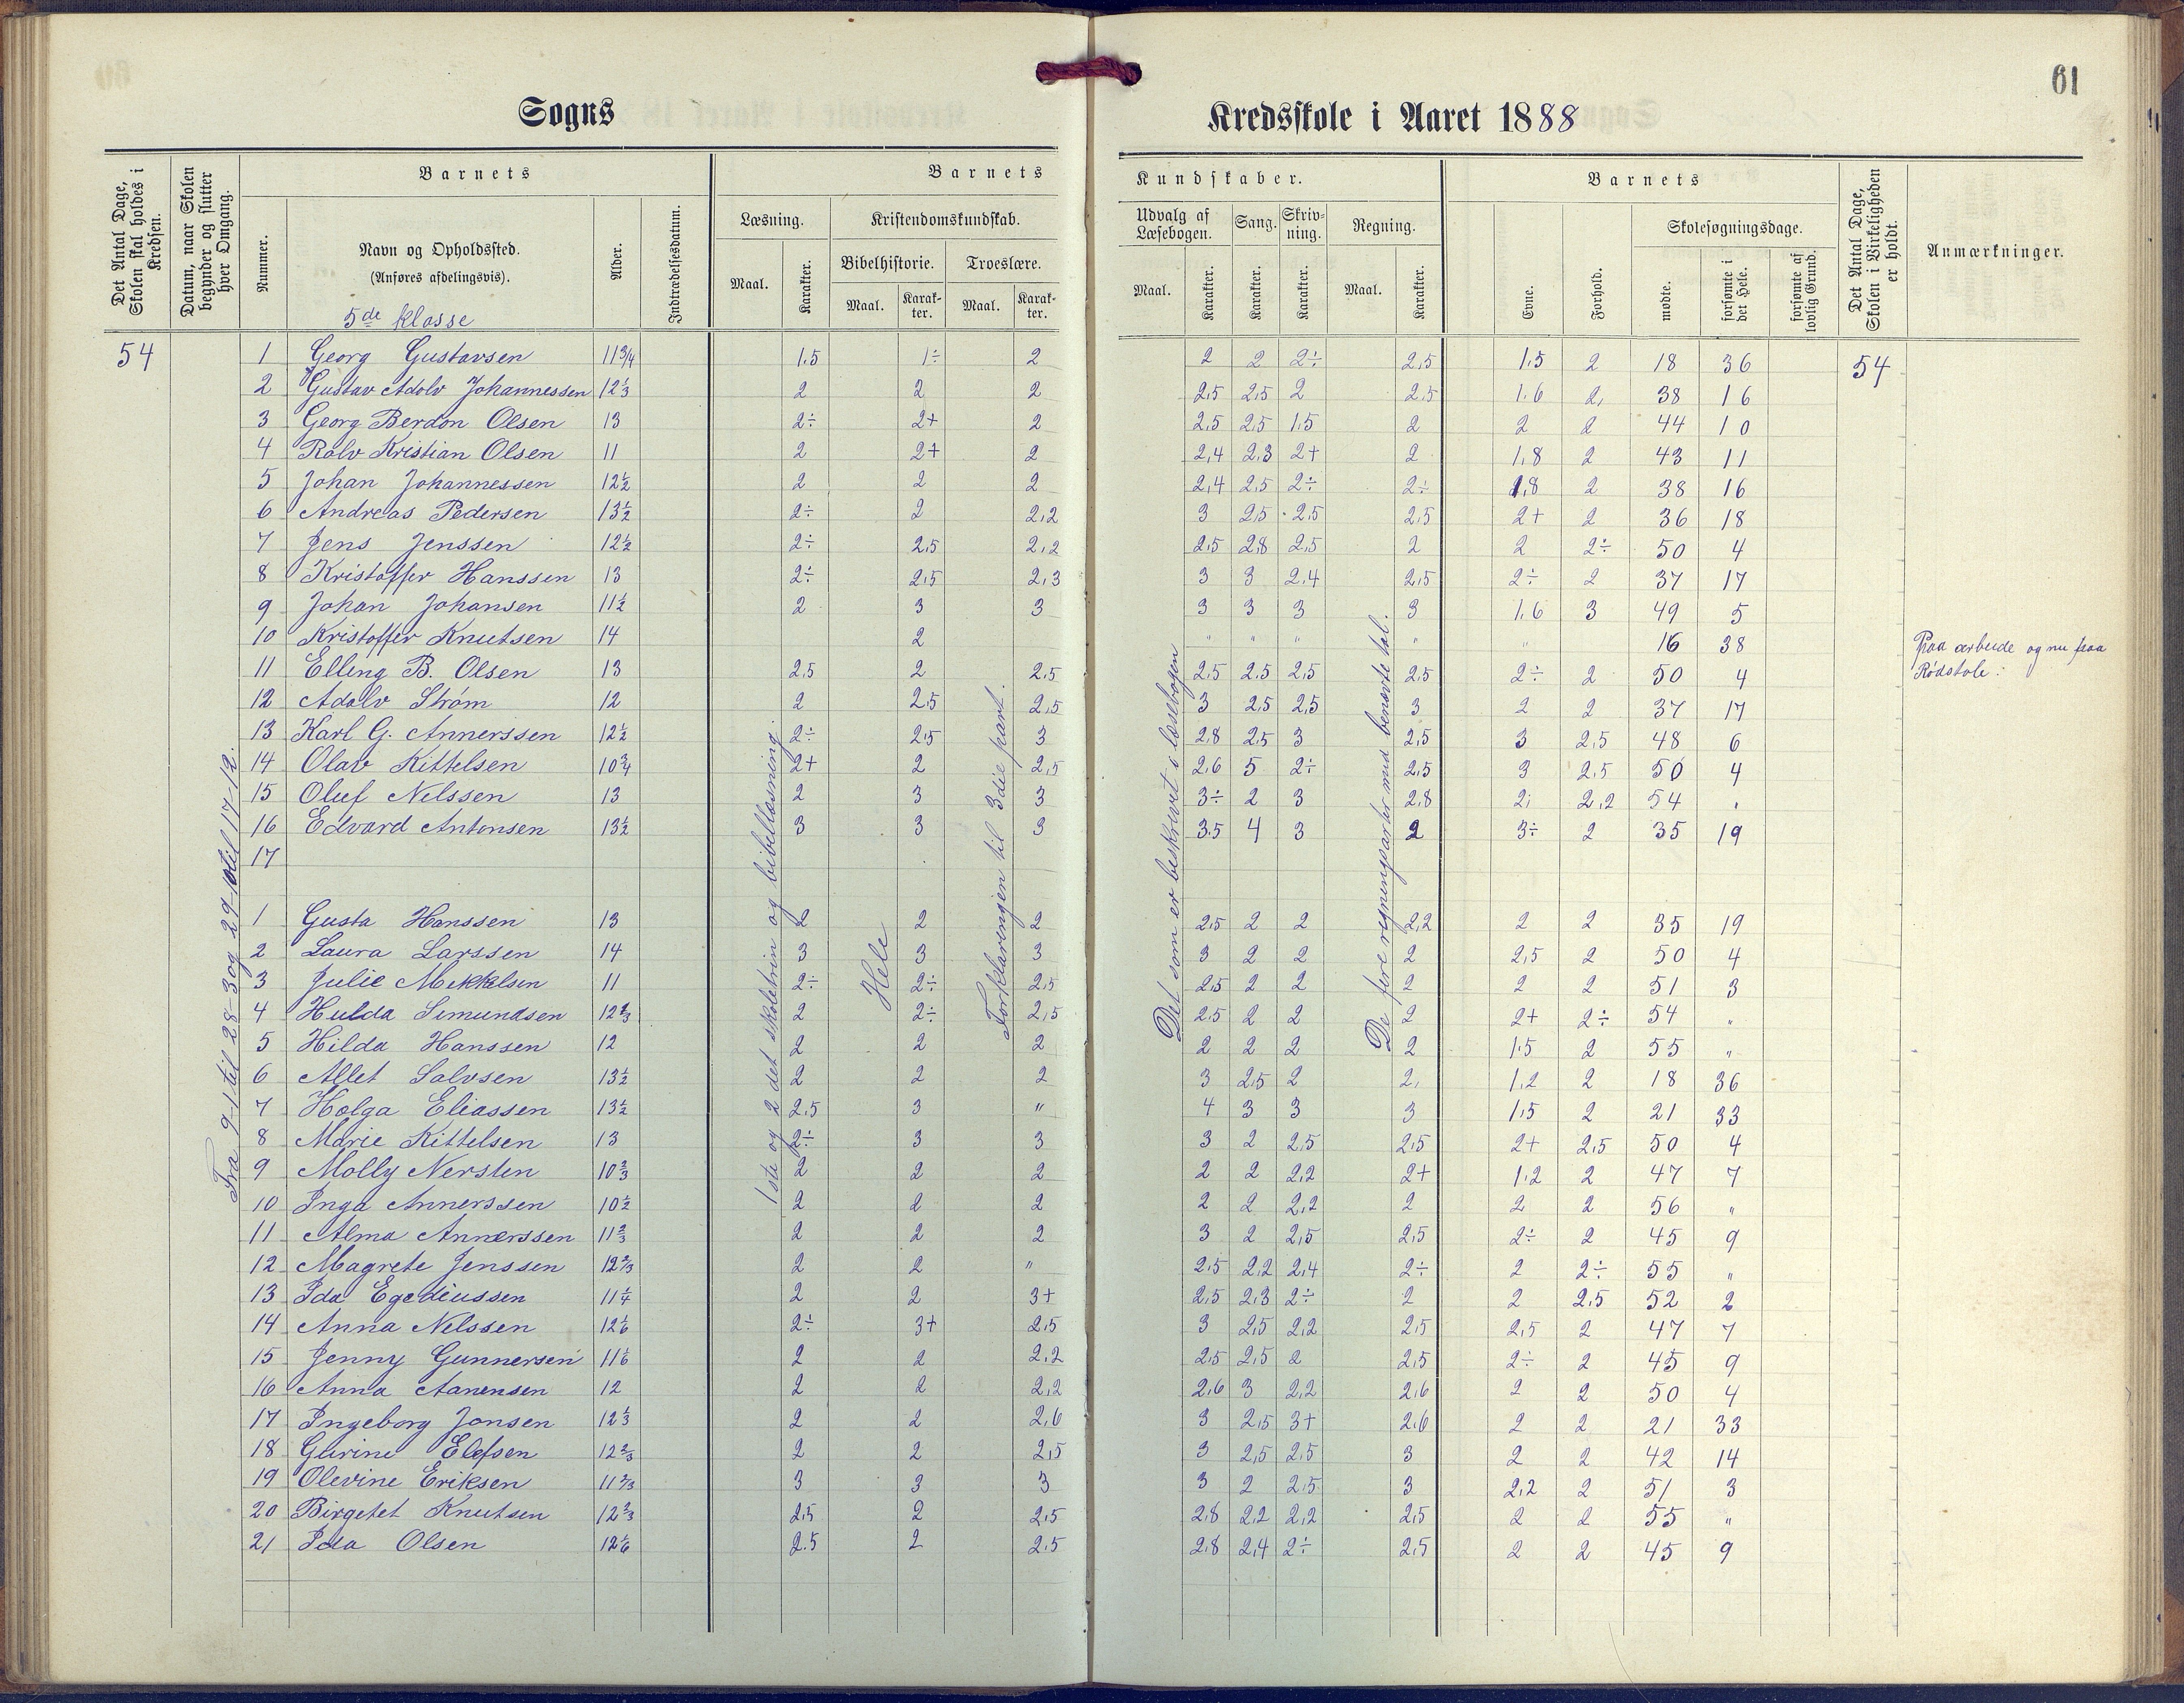 61
Sogns Kredsskole i Aaret 1888
Det Antal Dage, Skolen skal holdes i Kredsen.
Datum, naar Skolen begynder og slutter hver Omgang.
Barnets
Nummer.
Navn og Opholdssted.
(Anføres afdelingsvis).
5de klasse
Alder.
Indtrædelsesdatum.
Barnets Kundskaber.
Læsning.
Maal.
Karakter.
Kristendomskundskab.
Bibelhistorie.
Maal.
Karakter.
Troeslære.
Maal.
Karakter.
Udvalg af Læsebogen.
Maal.
Karakter.
Sang.
Karakter.
Skrivning.
Karakter.
Regning.
Maal.
Karakter.
Barnets
Evne.
Forhold.
Skolesøgningsdage.
mødte.
forsømte i det Hele.
forsømte af lovlig Grund.
Det Antal Dage, Skolen i Virkeligheden er holdt.
Anmærkninger.
54 1 Georg Gustavsen 11 3/4 1.5 1÷ 2 2 2 2÷ 2,5 1.5 2 18 36 54
2 Gustav Adolv Johannessen 12 1/3 2 2 2 2,5 2,5 2 2,5 1.6 2, 38 16
3 Georg Berdon Olsen 13 2÷ 2+ 2 2,5 2,5 1.5 2 2 2 44 10
4 Rolv Kristian Olsen 11 2 2+ 2 2,4 2,3 2+ 2 1,8 2 43 11
5 Johan Johannessen 12 1/2 2 2 2 2,4 2,5 2÷ 2÷ 1,8 2 38 16
6 Andreas Pedersen 13 1/2 2÷ 2 2,2 3 2,5 2,5 2,5 2+ 2 36 18
7 Jens Jenssen 12 1/2 2÷ 2,5 2,2 2,5 2,8 2,5 2 2 2÷ 50 4
8 Kristoffer Hanssen 13 2÷ 2,5 2,3 3 3 2,4 2,5 2÷ 2 37 17
9 Johan Johansen 11 1/2 2 3 3 3 3 3 3 1.6 3 49 5
10 Kristoffer Knutsen 14 2 " " " " " 16 38 Paa arbeide og nu paa
Rødskole.
11 Elling B. Olsen 13 2,5 2 2,5 2,5 2,5 2,5 2,5 2÷ 2 50 4
12 Adolv Strøm 12 2 2,5 2,5 3 2,5 2,5 3 2 2 37 17
13 Karl G. Annerssen 12 1/2 2÷ 2,5 3 2,8 2,5 3 2,5 3 2,5 48 6
14 Olav Kittelsen 10 3/4 2+ 2 2,5 2,6 5 2÷ 2,5 3 2,5 50 4
15 Oluf Nelssen 13 2 3 3 3÷ 2 3 2,8 2, 2,2 54 "
16 Edvard Antonsen 13 1/2 3 3 3 3,5 4 3 2 3÷ 2 35 19
17
1 Gusta Hanssen 13 2 2 2 2,5 2 2 2,2 2 2 35 19
2 Laura Larssen 14 3 3 3 3 2 2 2 2,5 2 50 4
3 Julie Mekkelsen 11 2÷ 2÷ 2,5 2,5 2 2 2 2 2 51 3
4 Hulda Simundsen 12 2/3 2 2÷ 2,5 2,5 2 2 2 2+ 2÷ 54 "
5 Hilda Hanssen 12 2 2 2 2 2 2 2 1.5 2 55 "
6 Allet Salvsen 13 1/2 2 2 2 3 2,5 2 2, 1,2 2 18 36
7 Holga Eliassen 13 1/2 2,5 3 " 4 3 3 3 1,5 2 21 33
8 Marie Kittelsen 13 2÷ 3 3 3 2 2,5 2,5 2+ 2,5 50 4
9 Molly Nersten 10 2/3 2 2 2 2 2 2,2 2+ 1.2 2 47 7
10 Inga Annerssen 10 1/2 2 2 2 2 2 2,2 2 2 2 56 "
11 Alma Annerssen 11 2/3 2 2 2 3 2 2,5 2,5 2÷ 2 45 9
12 Magrete Jenssen 12 2/3 2 2 " 2,5 2,2 2,4 2÷ 2 2÷ 55 "
13 Ida Egediussen 11 1/4 2 2 3+ 2,5 2,3 2÷ 2 2 2,5 52 2
14 Anna Nelssen 12 1/6 2÷ 3+ 2,5 3 2,5 2,2 2,5 2,5 2 47 7
15 Jenny Gunnersen 11 1/6 2 2 2,2 2,5 2,5 2 2,5 2÷ 2 45 9
16 Anna Aanensen 12 2 2 2,2 2,6 3 2,2 2,6 2 2 50 4
17 Ingeborg Jonsen 12 1/3 2 2 2,6 3 2,5 3+ 2,6 2 2 21 33
18 Gurine Elefsen 12 2/3 2 2 2,5 3 2,5 2,5 3 2 2 42 14
19 Olevine Eriksen 11 2/3 3 3 3 3 2 2,5 3 2,2 2 51 3
20 Birgetet Knutsen 12 2/3 2,5 2 2,5 2,8 2,2 2,2 2,5 2 2 55 "
21 Ida Olsen 12 1/6 2.5 2 2,5 2,8 2,4 2÷ 2,5 2 2 45 9
Fra 9-1 til 28-3 og 29-10 til 17-12.
1ste og 2det skoletrin og bibellæsning.
Hele
Forklaringen til 3die part.
Det som er beskrevet i læsebogen
De fire regningsarter med benævte tal.